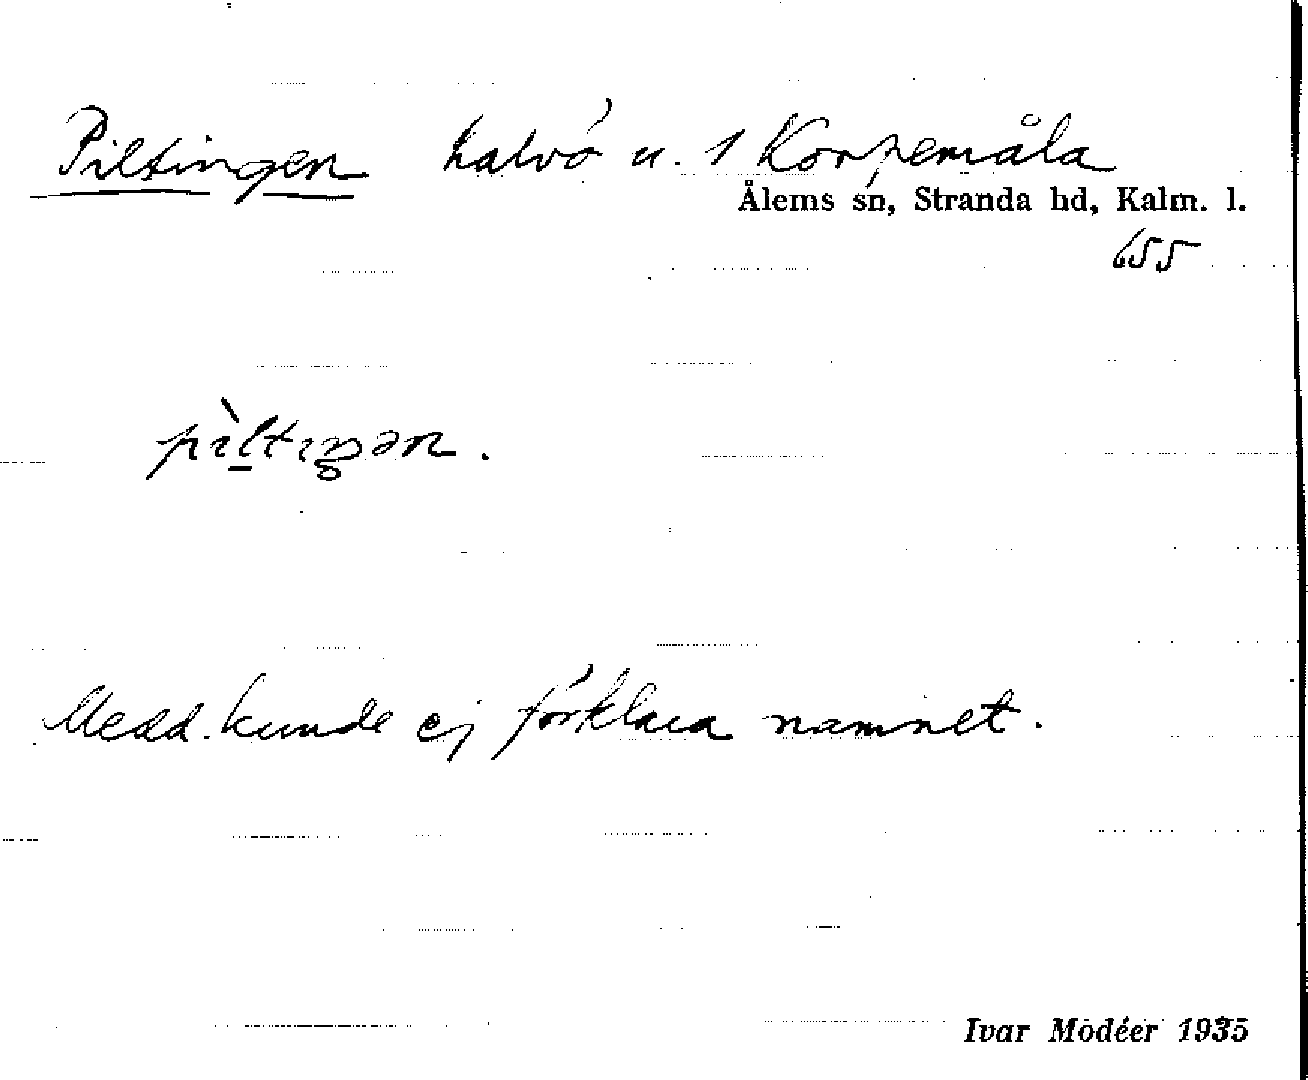 Piltingen halvö u. 1 Korpemåla
Ålems sn, Stranda hd, Kalm. l.
655
pìltıŋən.
Medd. kunde ej förklara namnet.
Ivar Modéer 1935